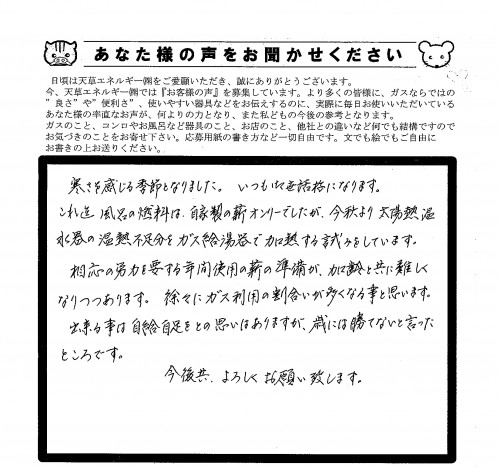 あなた様の声をお聞かせください
日頃は天草エネルギー㈱をご愛顧いただき、誠にありがとうございます。
今、天草エネルギー㈱では『お客様の声』を募集しています。より多くの皆様に、ガスならではの
”良さ”や”便利さ”、使いやすい器具などをお伝えするのに、実際に毎日お使いいただいている
あなた様の率直なお声が、何よりの力となり、また私どもの今後の参考となります。
ガスのこと、コンロやお風呂など器具のこと、お店のこと、他社との違いなど何でも結構ですので
お気づきのことをお寄せ下さい。応募用紙の書き方など一切自由です。文でも絵でもご自由に
お書きの上お送りください。
寒さを感じる季節となりました。いつもお世話様になります。
これ迄 風呂の燃料は、自家製の薪オンリーでしたが、今秋より 太陽熱温
水器の温熱不足分をガス給湯器で加熱する試みをしています。
相応の労力を要する年間使用の薪の準備が、加齢と共に難しく
なりつつあります。徐々にガス利用の割合いが多くなる事と思います。
出来る事は自給自足をとの思いはありますが、歳には勝てないと言った
ところです。
今後共、よろしくお願い致します。